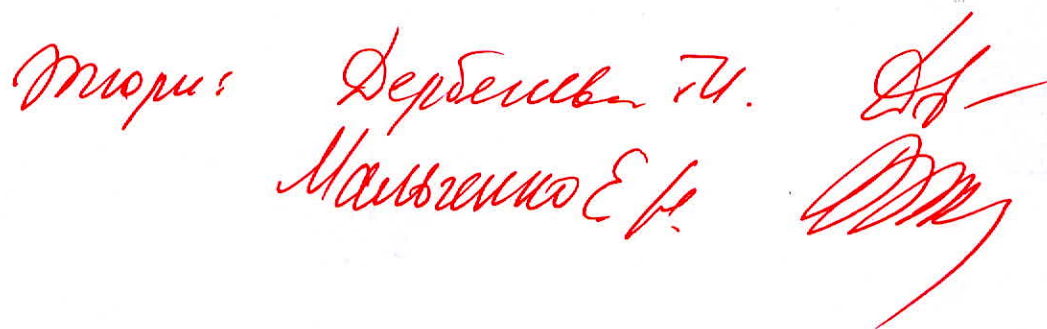 Жюри: Дербенева Т.И.
Мальченко Е